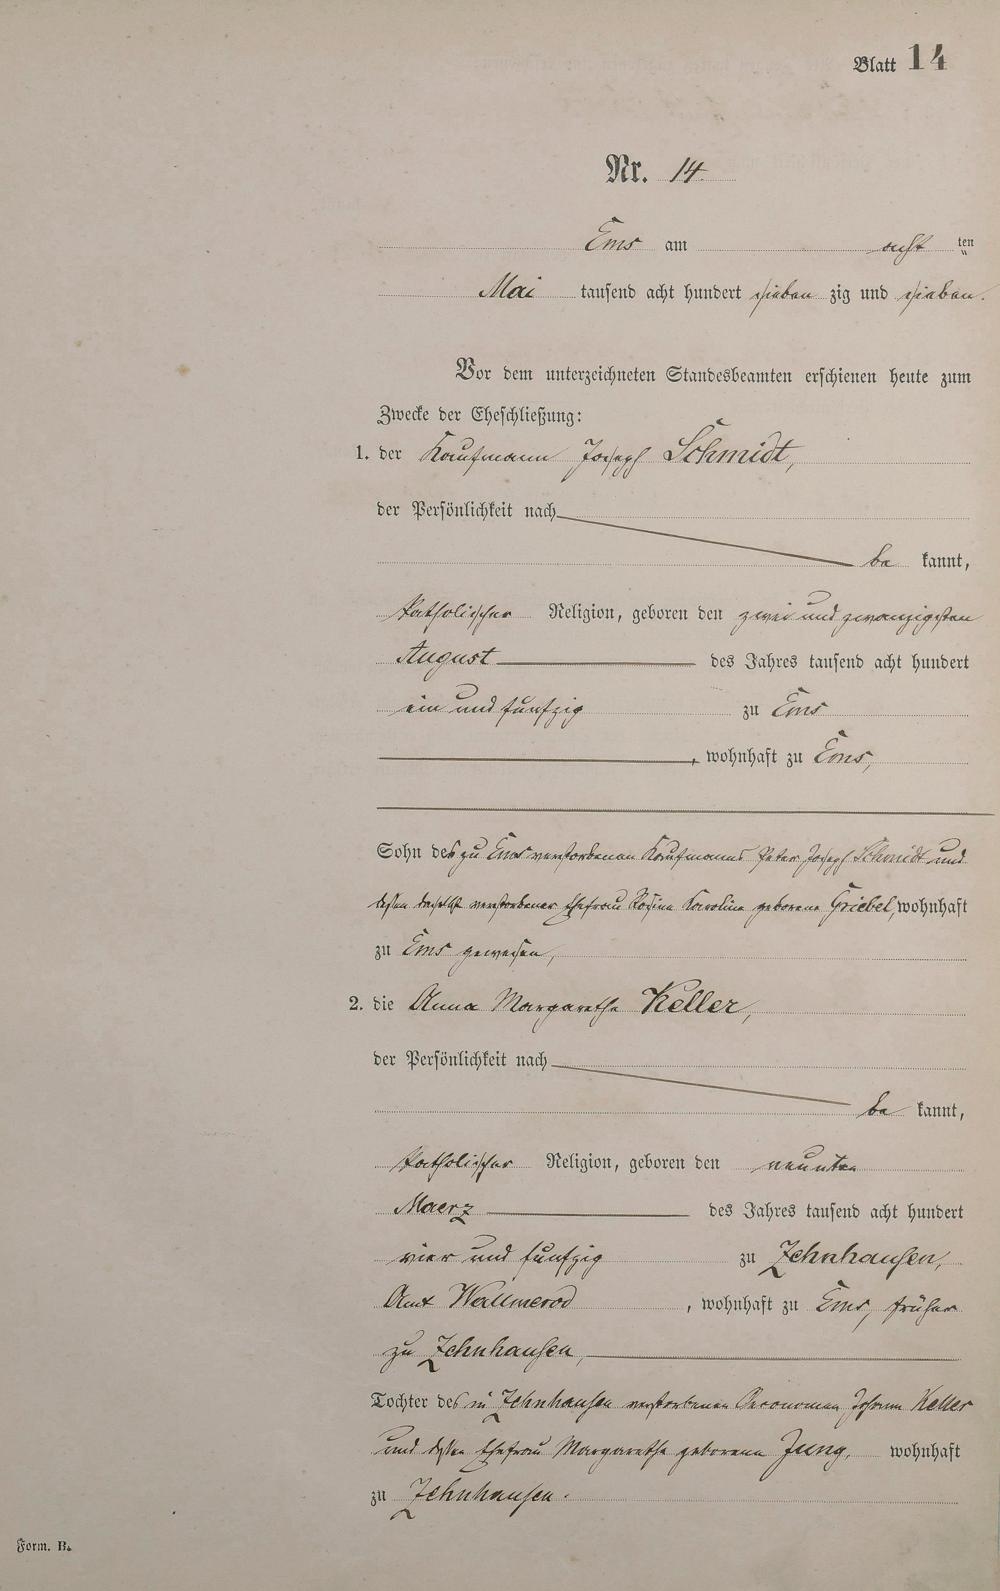 Blatt 14
Nr. 14.
Ems am acht ten
Mai tausend acht hundert sieben zig und sieben.
Vor dem unterzeichneten Standesbeamten erschienen heute zum
Zwecke der Eheschließung:
1. der Kaufmann Joseph Schmidt,
der Persönlichkeit nach
be kannt,
katholischer Religion, geboren den zwei und zwanzigsten
August des Jahres tausend acht hundert
ein und fünfzig zu Ems
, wohnhaft zu Ems,
Sohn des zu Ems verstorbenen Kaufmanns Peter Joseph Schmidt und
dessen daselbst verstorbener Ehefrau Rosina Karolina geborene Griebel, wohnhaft
zu Ems gewesen,
2. die Anna Margaretha Keller,
der Persönlichkeit nach
be kannt,
katholischer Religion, geboren den neunten
Maerz des Jahres tausend acht hundert
vier und fünfzig zu Zehnhausen,
Amt Wallmerod , wohnhaft zu Ems, früher
zu Zehnhausen,
Tochter des in Zehnhausen verstorbenen Oeconomen Johann Keller
und dessen Ehefrau Margaretha geborene Jung, wohnhaft
zu Zehnhausen.
Form. B.